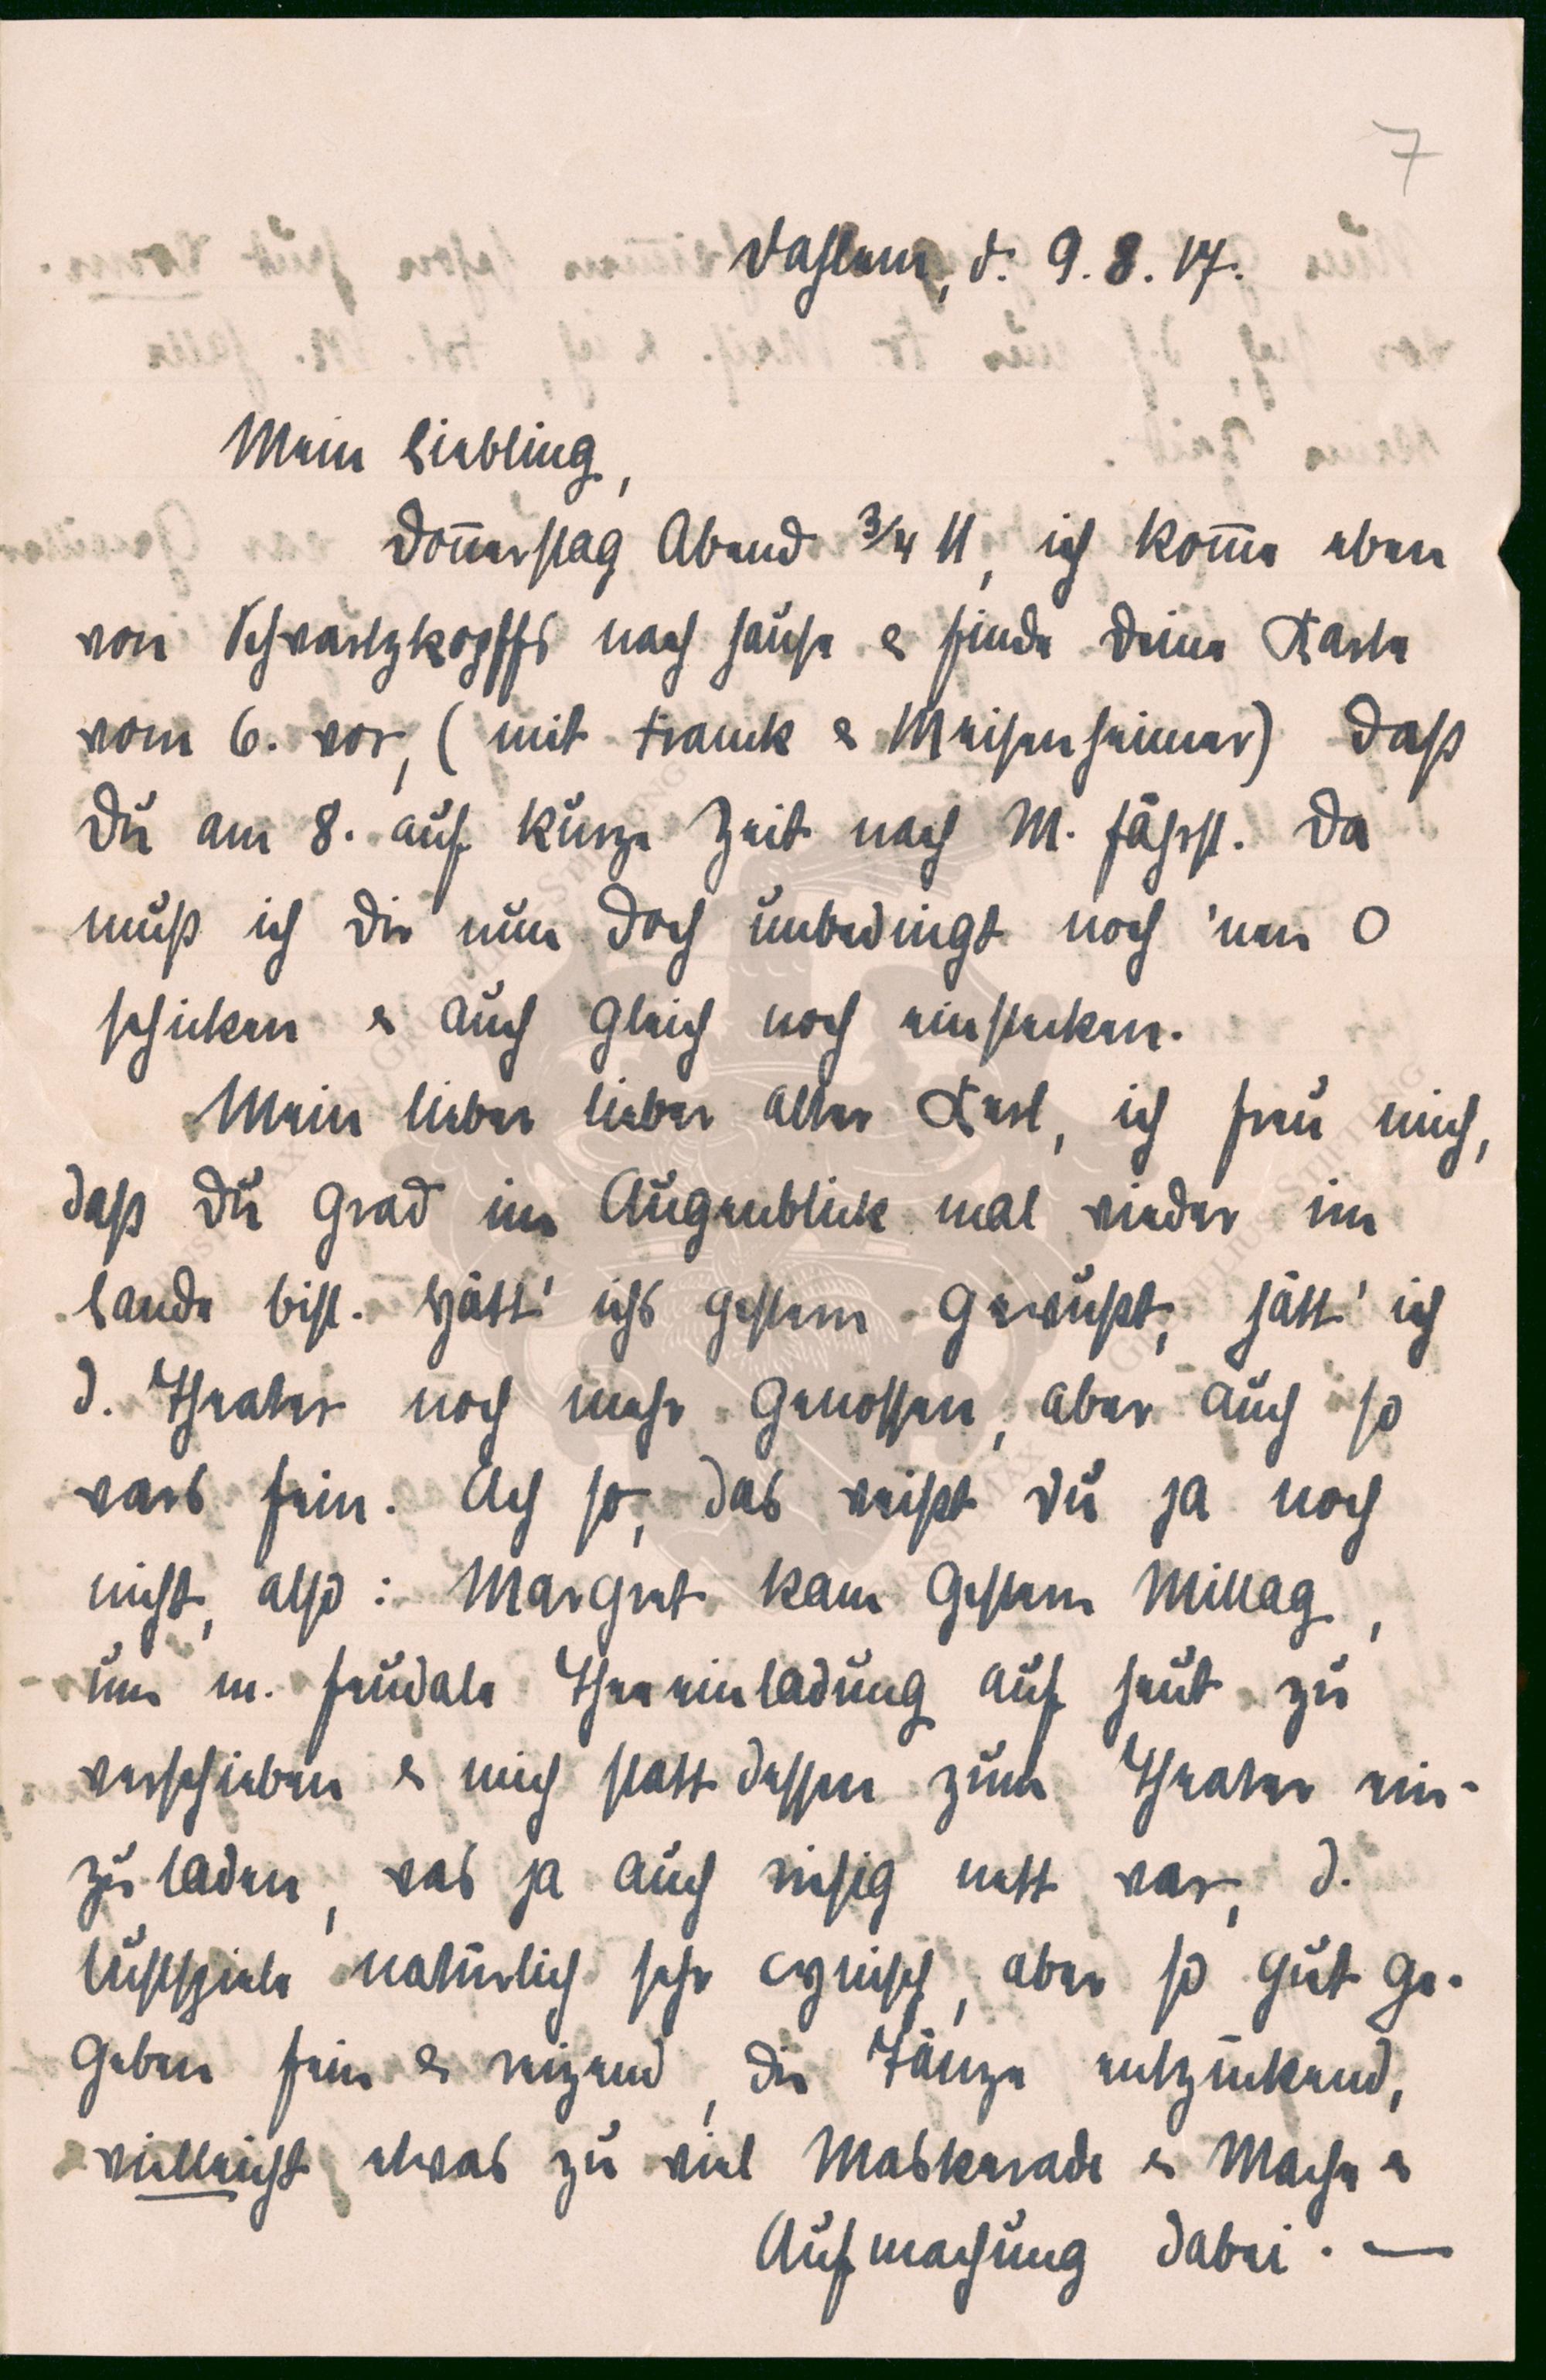 7
Dahlem, d. 9. 8. 17.
Mein Liebling,
Don̄erstag Abend ¾ 11, ich kom̄e eben
von Schwartzkopffs nach hause & finde Deine Karte
vom 6. vor, (mit Franck & Meisenheimer) Daß
Du am 8. auf kurze Zeit nach M. fährst. Da
muß ich Dir nun doch unbedingt noch 'nen O
schicken & auch gleich noch einstecken.
Mein lieber lieber alter Kerl, ich freu mich,
daß Du grad im Augenblick mal wieder im
Lande bist. Hätt' ichs gestern gewußt, hätt' ich
d. Theater noch mehr genossen, aber auch so
wars fein. Ach so, das weißt Du ja noch
nicht, also: Margret kam gestern Mittag,
um m. feudale Theeeinladung auf heut zu
verschieben & mich statt dessen zum Theater ein-
zuladen, was ja auch riesig nett war, d.
Lustspiele natürlich sehr cynisch, aber so gut ge-
geben fein & reizend, die Tänze entzückend,
vielleicht etwas zu viel Maskerade & Mache &
Aufmachung dabei. —